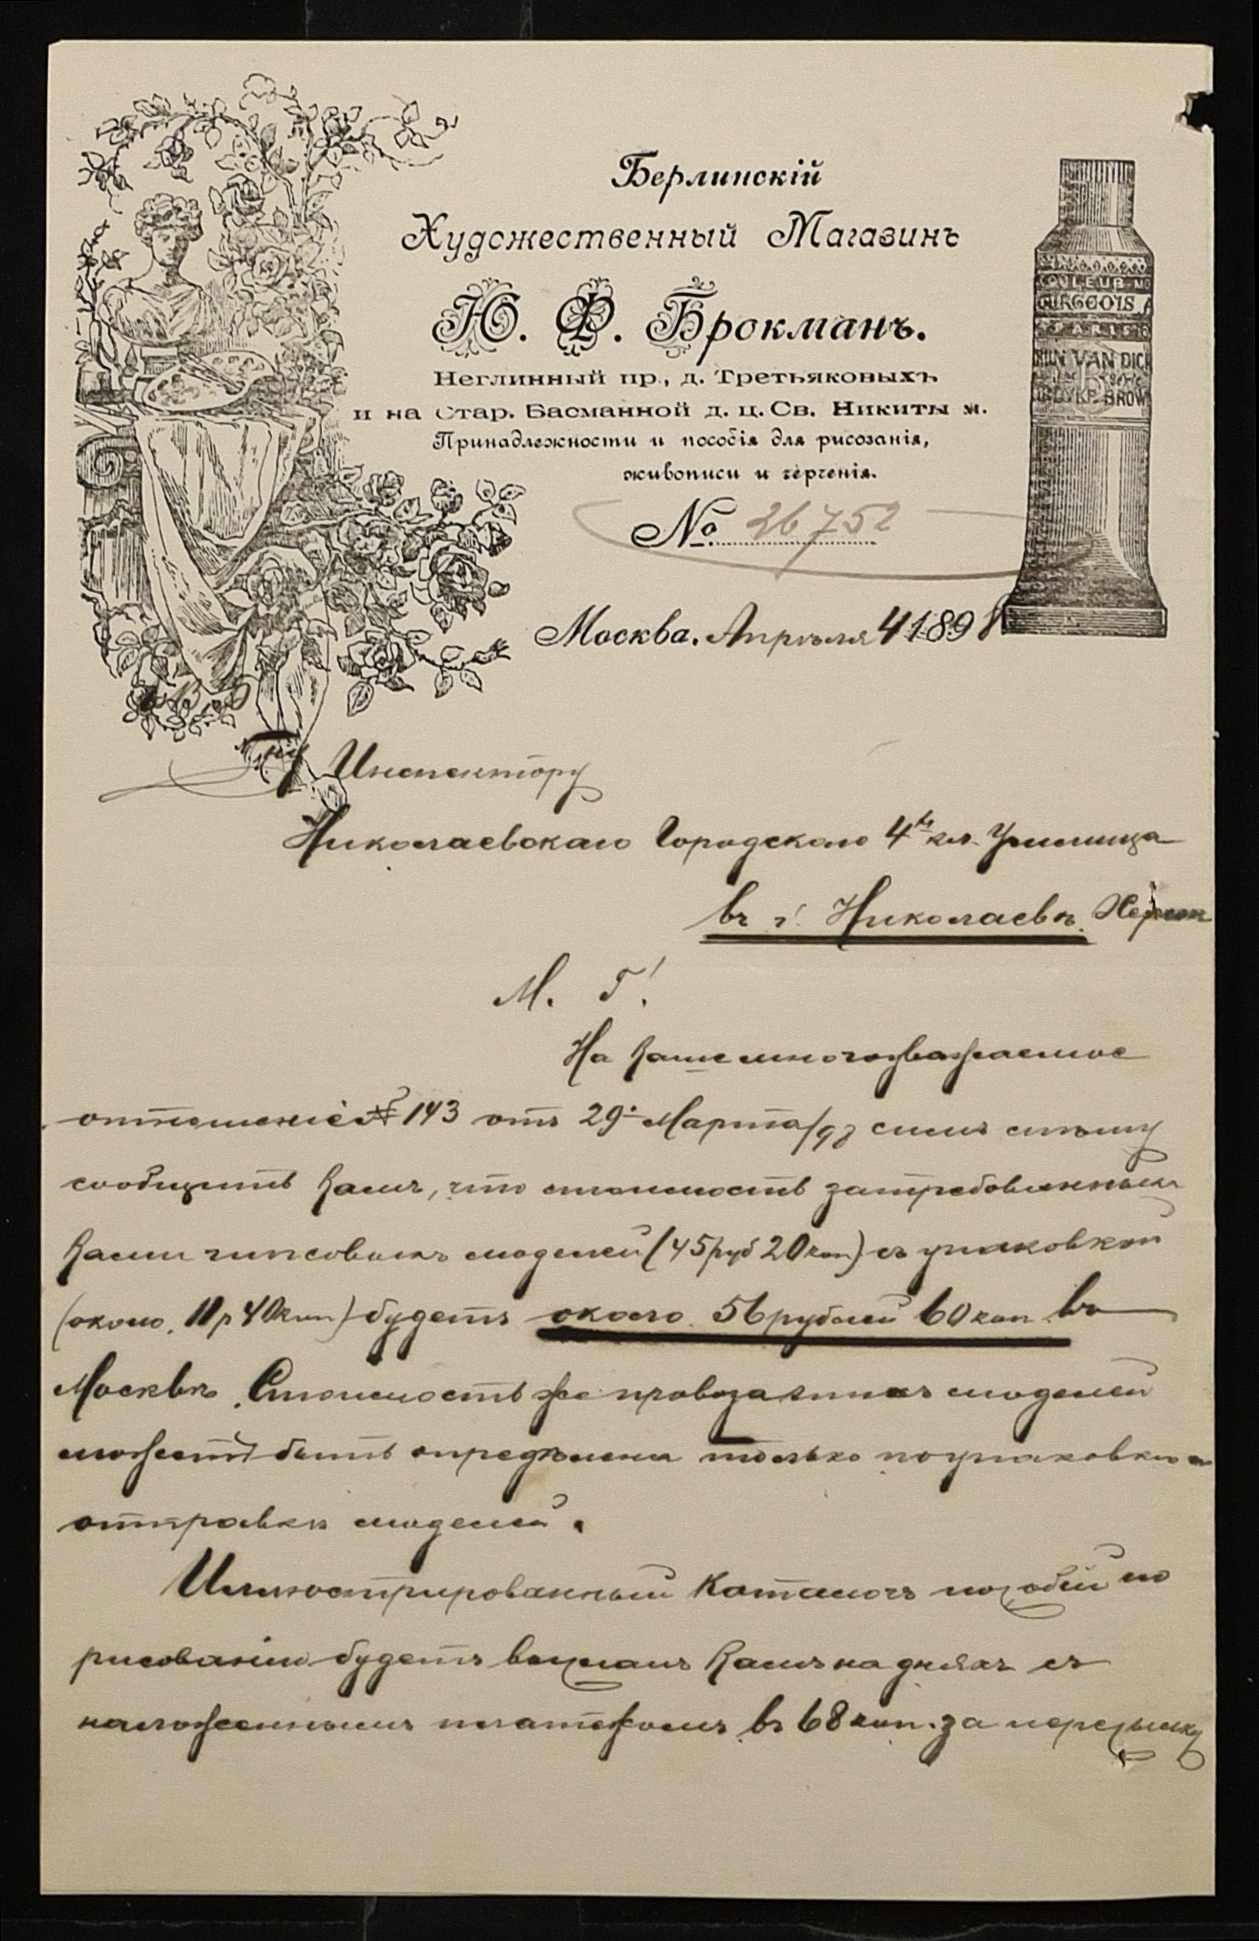 Берлинскій
Художественный Магазинъ
Ю. Ф. Брокманъ.
Неглинный пр., д. Третьяковыхъ
и на Стар. Басманной д. ц. Св. Никиты м.
Принадлежности и пособія для рисованія,
живописи и черченія.
№ 26752
Москва. Апрѣля 4 1898
COULEUR MO
OURGEOIS A
PARIS
BRUN VAN DICK
VANDYKE BROWN
Инспектору
Николаевскаго Городского 4хъ кл. Училища
въ г. Николаевѣ Херсон
М. Г!
На Ваше многоуважаемое
отношеніе № 143 отъ 29. Марта/98 симъ спѣшу
сообщить Вамъ, что стоимость затребованныхъ
Вами гипсовыхъ моделей (45 руб 20 коп) съ упаковкой
(около 11 р 40 коп) будетъ около 56 рублей 60 коп въ
Москвѣ. Стоимость же провоза гипс. моделей
можетъ быть опредѣлена только по упаковкѣ и
отправкѣ моделей.
Иллюстрированный Каталогъ пособій по
рисованію будетъ высланъ Вамъ на дняхъ съ
наложеннымъ платежомъ въ 68 коп. за пересылку